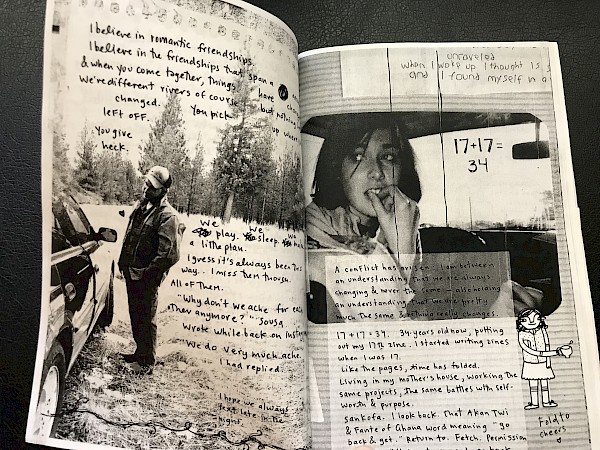 I believe in romantic friendships.
I believe in the friendships that span a
& when you come together, things have
We're different rivers of course but nothing
changed. You pick up where
left off.
You give
heck.
We We We
play. sleep.
a little plan.
I guess it's always been this
way.. I miss them though.
All of Them.
"Why don't we ache for each
other anymore?" Sousa
wrote while back on Insta
"We do very much ache
I had replied.
I hope we always
text late in the
nights.
unraveled
when I woke up I thought is
and I found myself in a
17+17=
34
A conflict has arisen: I am between
an understanding that we are always
changing & never the same — also holding
an understanding that we are pretty
much the same & nothing really changes.
17 + 17 = 34. 34 years old now, putting
out my 17th zine. I started writing zines
when I was 17.
Like the pages, time has folded.
Living in my mother's house, working the
same projects, the same battles with self-
worth & purpose.
Sankofa. I look back. That Akan Twi
& Fante of Ghana word meaning "go
back & get." Return to. Fetch. Permission
Fold to
cheers